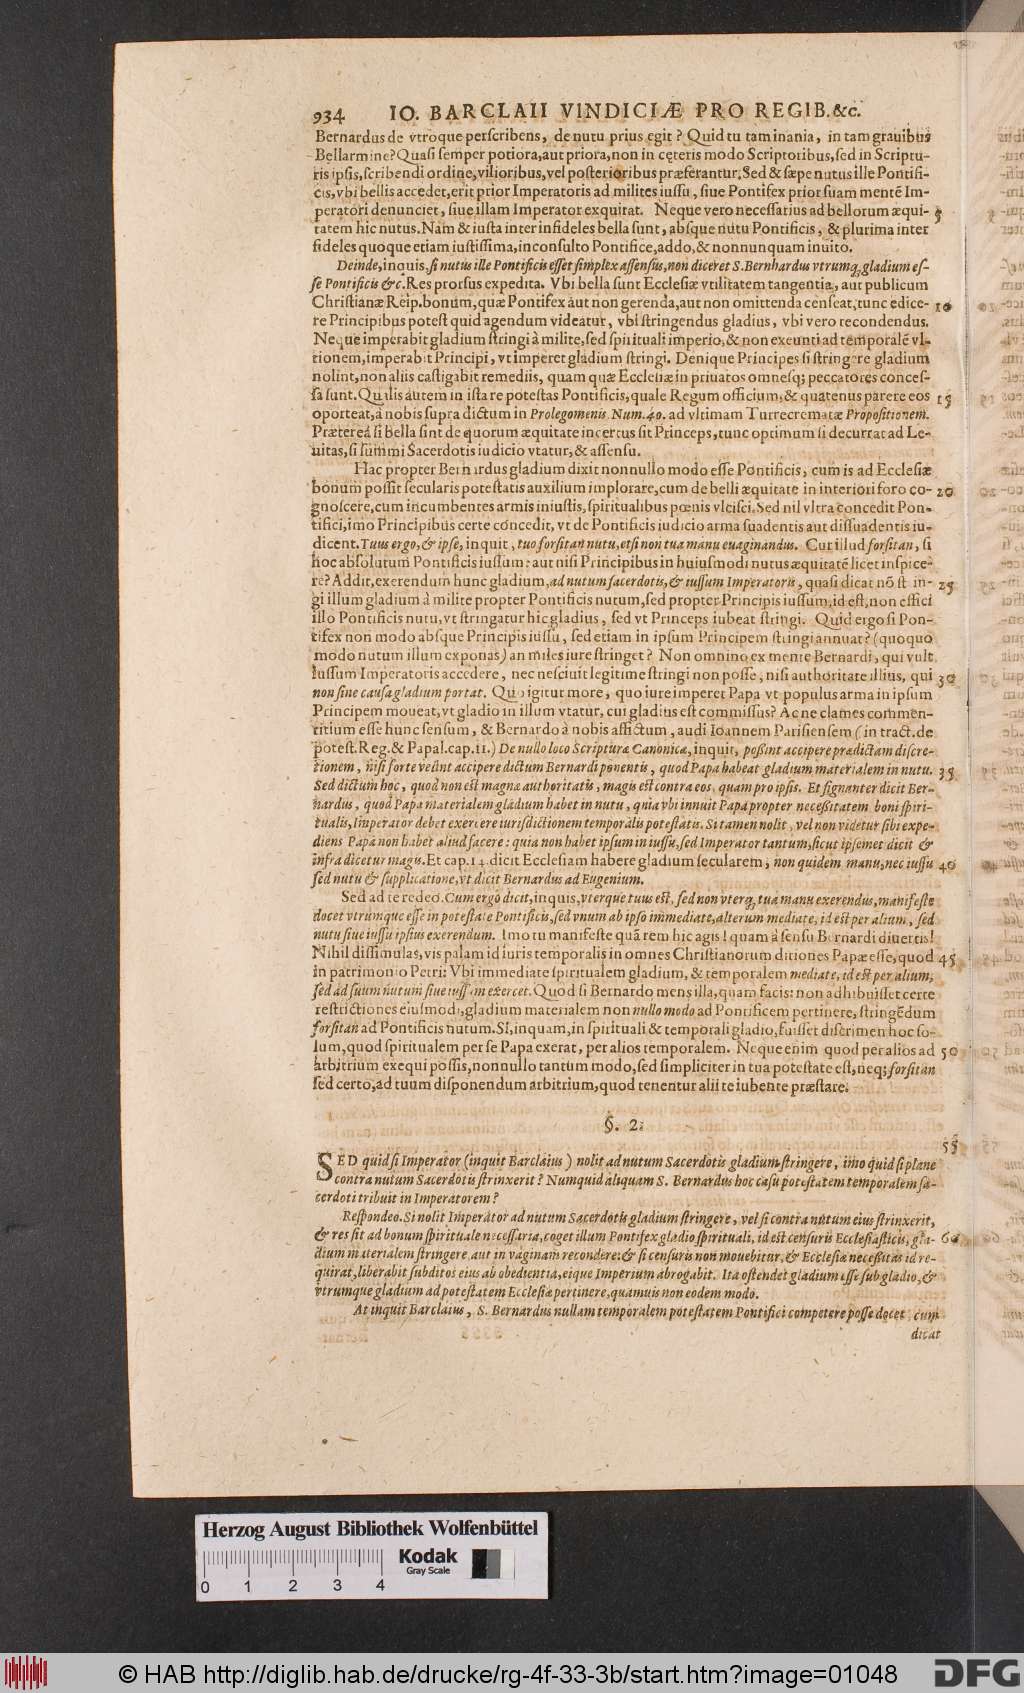 934 IO. BARCLAII VINDICIÆ PRO REGIB. &c.
Bernardus de vtroque perſcribens, de nutu prius egit? Quid tu tam inania, in tam grauibus
Bellarmine? Quaſi ſemper potiora, aut priora, non in cęteris modo Scriptoribus, ſed in Scriptu-
ris ipſis, ſcribendi ordine, vilioribus, vel poſterioribus præferantur. Sed & ſæpe nutus ille Pontifi-
cis, vbi bellis accedet, erit prior Imperatoris ad milites iuſſu, ſiue Pontifex prior ſuam mentē Im-
peratori denunciet, ſiue illam Imperator exquirat. Neque vero neceſſarius ad bellorum æqui- 5
tatem hic nutus. Nam & iuſta inter infideles bella ſunt, abſque nutu Pontificis, & plurima inter
fideles quoque etiam iuſtiſſima, inconſulto Pontifice, addo, & nonnunquam inuito.
Deinde, inquis, ſi nutus ille Pontificis eſſet ſimplex aſſenſus, non diceret S. Bernhardus vtrumq; gladium eſ-
ſe Pontificis &c. Res prorſus expedita. Vbi bella ſunt Eccleſiæ vtilitatem tangentia, aut publicum
Chriſtianæ Reip. bonum, quæ Pontifex aut non gerenda, aut non omittenda cenſeat, tunc edice- 10
re Principibus poteſt quid agendum videatur, vbi ſtringendus gladius, vbi vero recondendus.
Neque imperabit gladium ſtringi à milite, ſed ſpirituali imperio, & non exeunti ad temporalē vl-
tionem, imperabit Principi, vt imperet gladium ſtringi. Denique Principes ſi ſtringere gladium
nolint, non aliis caſtigabit remediis, quam quæ Eccleſiæ in priuatos omneſq; peccatores conceſ-
ſa ſunt. Qualis autem in iſta re poteſtas Pontificis, quale Regum officium, & quatenus parere eos 15
oporteat, à nobis ſupra dictum in Prolegomenis Num. 40. ad vltimam Turrecrematæ Propoſitionem.
Prætereà ſi bella ſint de quorum æquitate incertus ſit Princeps, tunc optimum ſi decurrat ad Le-
uitas, ſi ſummi Sacerdotis iudicio vtatur, & aſſenſu.
Hac propter Bernardus gladium dixit nonnullo modo eſſe Pontificis, cum is ad Eccleſiæ
bonum poſſit ſecularis poteſtatis auxilium implorare, cum de belli æquitate in interiori foro co- 20
gnoſcere, cum incumbentes armis iniuſtis, ſpiritualibus pœnis vlciſci. Sed nil vltra concedit Pon-
tifici, imo Principibus certe concedit, vt de Pontificis iudicio arma ſuadentis aut diſſuadentis iu-
dicent. Tuus ergo, & ipſe, inquit, tuo forſitan nutu, etſi non tua manu euaginandus. Cur illud forſitan, ſi
hoc abſolutum Pontificis iuſſum: aut niſi Principibus in huiuſmodi nutus æquitatē licet inſpice-
re? Addit, exerendum hunc gladium, ad nutum ſacerdotis, & iuſſum Imperatoris, quaſi dicat nō ſtrin- 25
gi illum gladium à milite propter Pontificis nutum, ſed propter Principis iuſſum, id eſt, non effici
illo Pontificis nutu, vt ſtringatur hic gladius, ſed vt Princeps iubeat ſtringi. Quid ergo ſi Pon-
tifex non modo abſque Principis iuſſu, ſed etiam in ipſum Principem ſtringi annuat? (quoquo
modo nutum illum exponas) an miles iure ſtringet? Non omnino ex mente Bernardi, qui vult
iuſſum Imperatoris accedere, nec neſciuit legitime ſtringi non poſſe, niſi authoritate illius, qui 30
non ſine cauſa gladium portat. Quo igitur more, quo iure imperet Papa vt populus arma in ipſum
Principem moueat, vt gladio in illum vtatur, cui gladius eſt commiſſus? Ac ne clames commen-
titium eſſe hunc ſenſum, & Bernardo à nobis affictum, audi Ioannem Pariſienſem (in tract. de
poteſt. Reg. & Papal. cap. 11.) De nullo loco Scripturæ Canonicæ, inquit, poſſint accipere prædictam diſcre-
tionem, niſi forte velint accipere dictum Bernardi ponentis, quod Papa habeat gladium materialem in nutu. 35
Sed dictum hoc, quod non eſt magnæ authoritatis, magis eſt contra eos, quam pro ipſis. Et ſignanter dicit Ber-
nardus, quod Papa materialem gladium habet in nutu, quia vbi innuit Papa propter neceſſitatem boni ſpiri-
tualis, Imperator debet exercere iurisdictionem temporalis poteſtatis. Si tamen nolit, vel non videtur ſibi expe-
diens Papa non habet aliud facere: quia non habet ipſum in iuſſu, ſed Imperator tantum, ſicut ipſemet dicit &
infra dicetur magis. Et cap. 14. dicit Eccleſiam habere gladium ſecularem, non quidem manu, nec iuſſu 40
ſed nutu & ſupplicatione, vt dicit Bernardus ad Eugenium.
Sed ad te redeo. Cum ergo dicit, inquis, vterque tuus eſt, ſed non vterq; tua manu exerendus, manifeſte
docet vtrumque eſſe in poteſtate Pontificis, ſed vnum ab ipſo immediate, alterum mediate, id eſt per alium, ſed
nutu ſiue iuſſu ipſius exerendum. Imo tu manifeſte quā rem hic agis! quam à ſenſu Bernardi diuertis!
Nihil diſſimulas, vis palam id iuris temporalis in omnes Chriſtianorum ditiones Papæ eſſe, quod 45
in patrimonio Petri: Vbi immediate ſpiritualem gladium, & temporalem mediate, id eſt per alium,
ſed ad ſuum nutum ſiue iuſſum exercet. Quod ſi Bernardo mens illa, quam facis: non adhibuiſſet certe
reſtrictiones eiuſmodi, gladium materialem non nullo modo ad Pontificem pertinere, ſtringēdum
forſitan ad Pontificis nutum. Si, inquam, in ſpirituali & temporali gladio, fuiſſet diſcrimen hoc ſo-
lum, quod ſpiritualem per ſe Papa exerat, per alios temporalem. Neque enim quod per alios ad 50
arbitrium exequi poſſis, nonnullo tantum modo, ſed ſimpliciter in tua poteſtate eſt, neq; forſitan
ſed certo, ad tuum diſponendum arbitrium, quod tenentur alii te iubente præſtare.
§. 2.
55
SED quid ſi Imperator (inquit Barclaius) nolit ad nutum Sacerdotis gladium ſtringere, imo quid ſi plane
contra nutum Sacerdotis ſtrinxerit? Numquid aliquam S. Bernardus hoc caſu poteſtatem temporalem ſa-
cerdoti tribuit in Imperatorem?
Reſpondeo. Si nolit Imperator ad nutum Sacerdotis gladium ſtringere, vel ſi contra nutum eius ſtrinxerit,
& res ſit ad bonum ſpirituale neceſſaria, coget illum Pontifex gladio ſpirituali, id eſt cenſuris Eccleſiaſticis, gla- 60
dium materialem ſtringere, aut in vaginam recondere: & ſi cenſuris non mouebitur, & Eccleſiæ neceſſitas id re-
quirat, liberabit ſubditos eius ab obedientia, eique Imperium abrogabit. Ita oſtendet gladium eſſe ſub gladio, &
vtrumque gladium ad poteſtatem Eccleſiæ pertinere, quamuis non eodem modo.
At inquit Barclaius, S. Bernardus nullam temporalem poteſtatem Pontifici competere poſſe docet, cum
dicat
Herzog August Bibliothek Wolfenbüttel
Kodak
Gray Scale
0 1 2 3 4
© HAB http://diglib.hab.de/drucke/rg-4f-33-3b/start.htm?image=01048
DFG